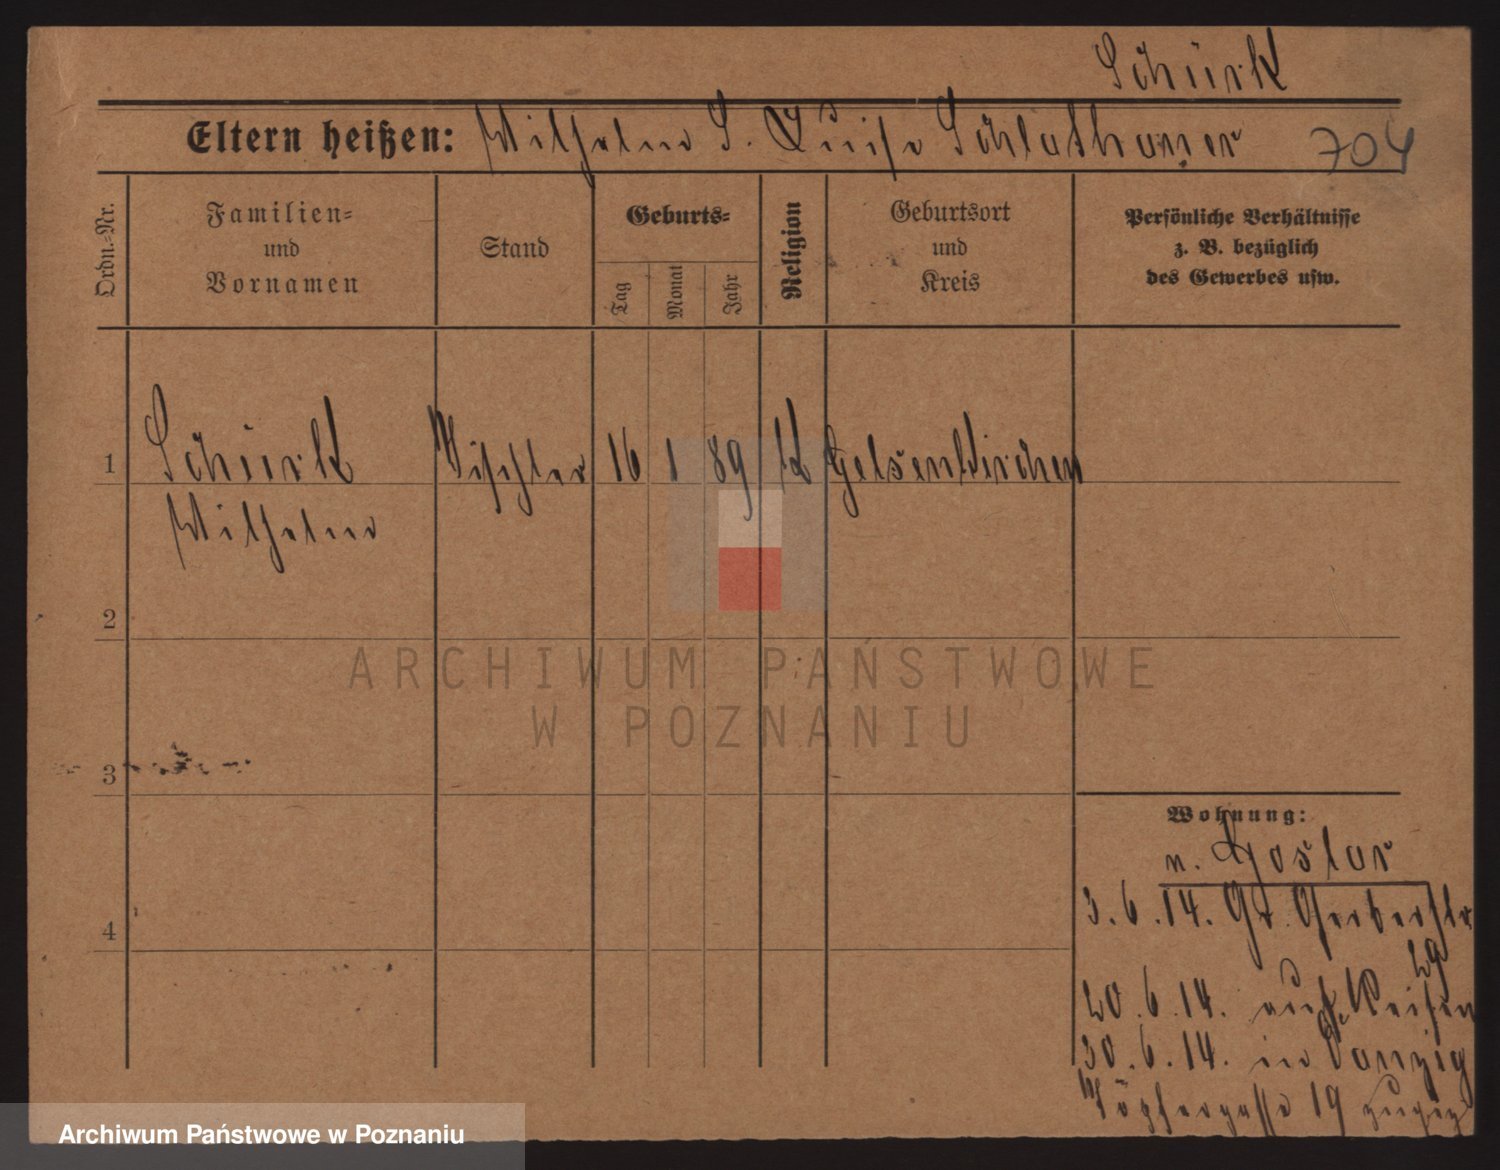 Schürk
Eltern heißen: Wilhelm S. Luise 704
Ordn.-Nr.
Familien-
und
Vornamen
Stand
Geburts-
Tag
Monat
Jahr
Religion
Geburtsort
und
Kreis
Persönliche Verhältnisse
z. B. bezüglich
des Gewerbes usw.
1 Schürk Tischler 16 1 89 k Gelsenkirchen
Wilhelm
2
3
4
Wohnung:
n. Goslar
3.6.14. Gr. Gerberstr
29
20.6.14. auf Reisen
30.6.14. in Danzig
Töpfergasse 19
ARCHIWUM PAŃSTWOWE
W POZNANIU
Archiwum Państwowe w Poznaniu